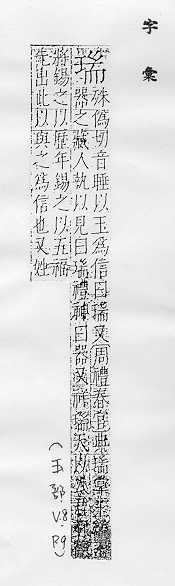 字彙
瑞
殊偽切音睡以玉為信曰瑞又周禮春官典瑞掌
器之藏人執以見曰瑞禮神曰器又祥瑞天
將錫之以歷年錫之以五福
先出此以與之為信也又姓
(玉部.V8.P9)